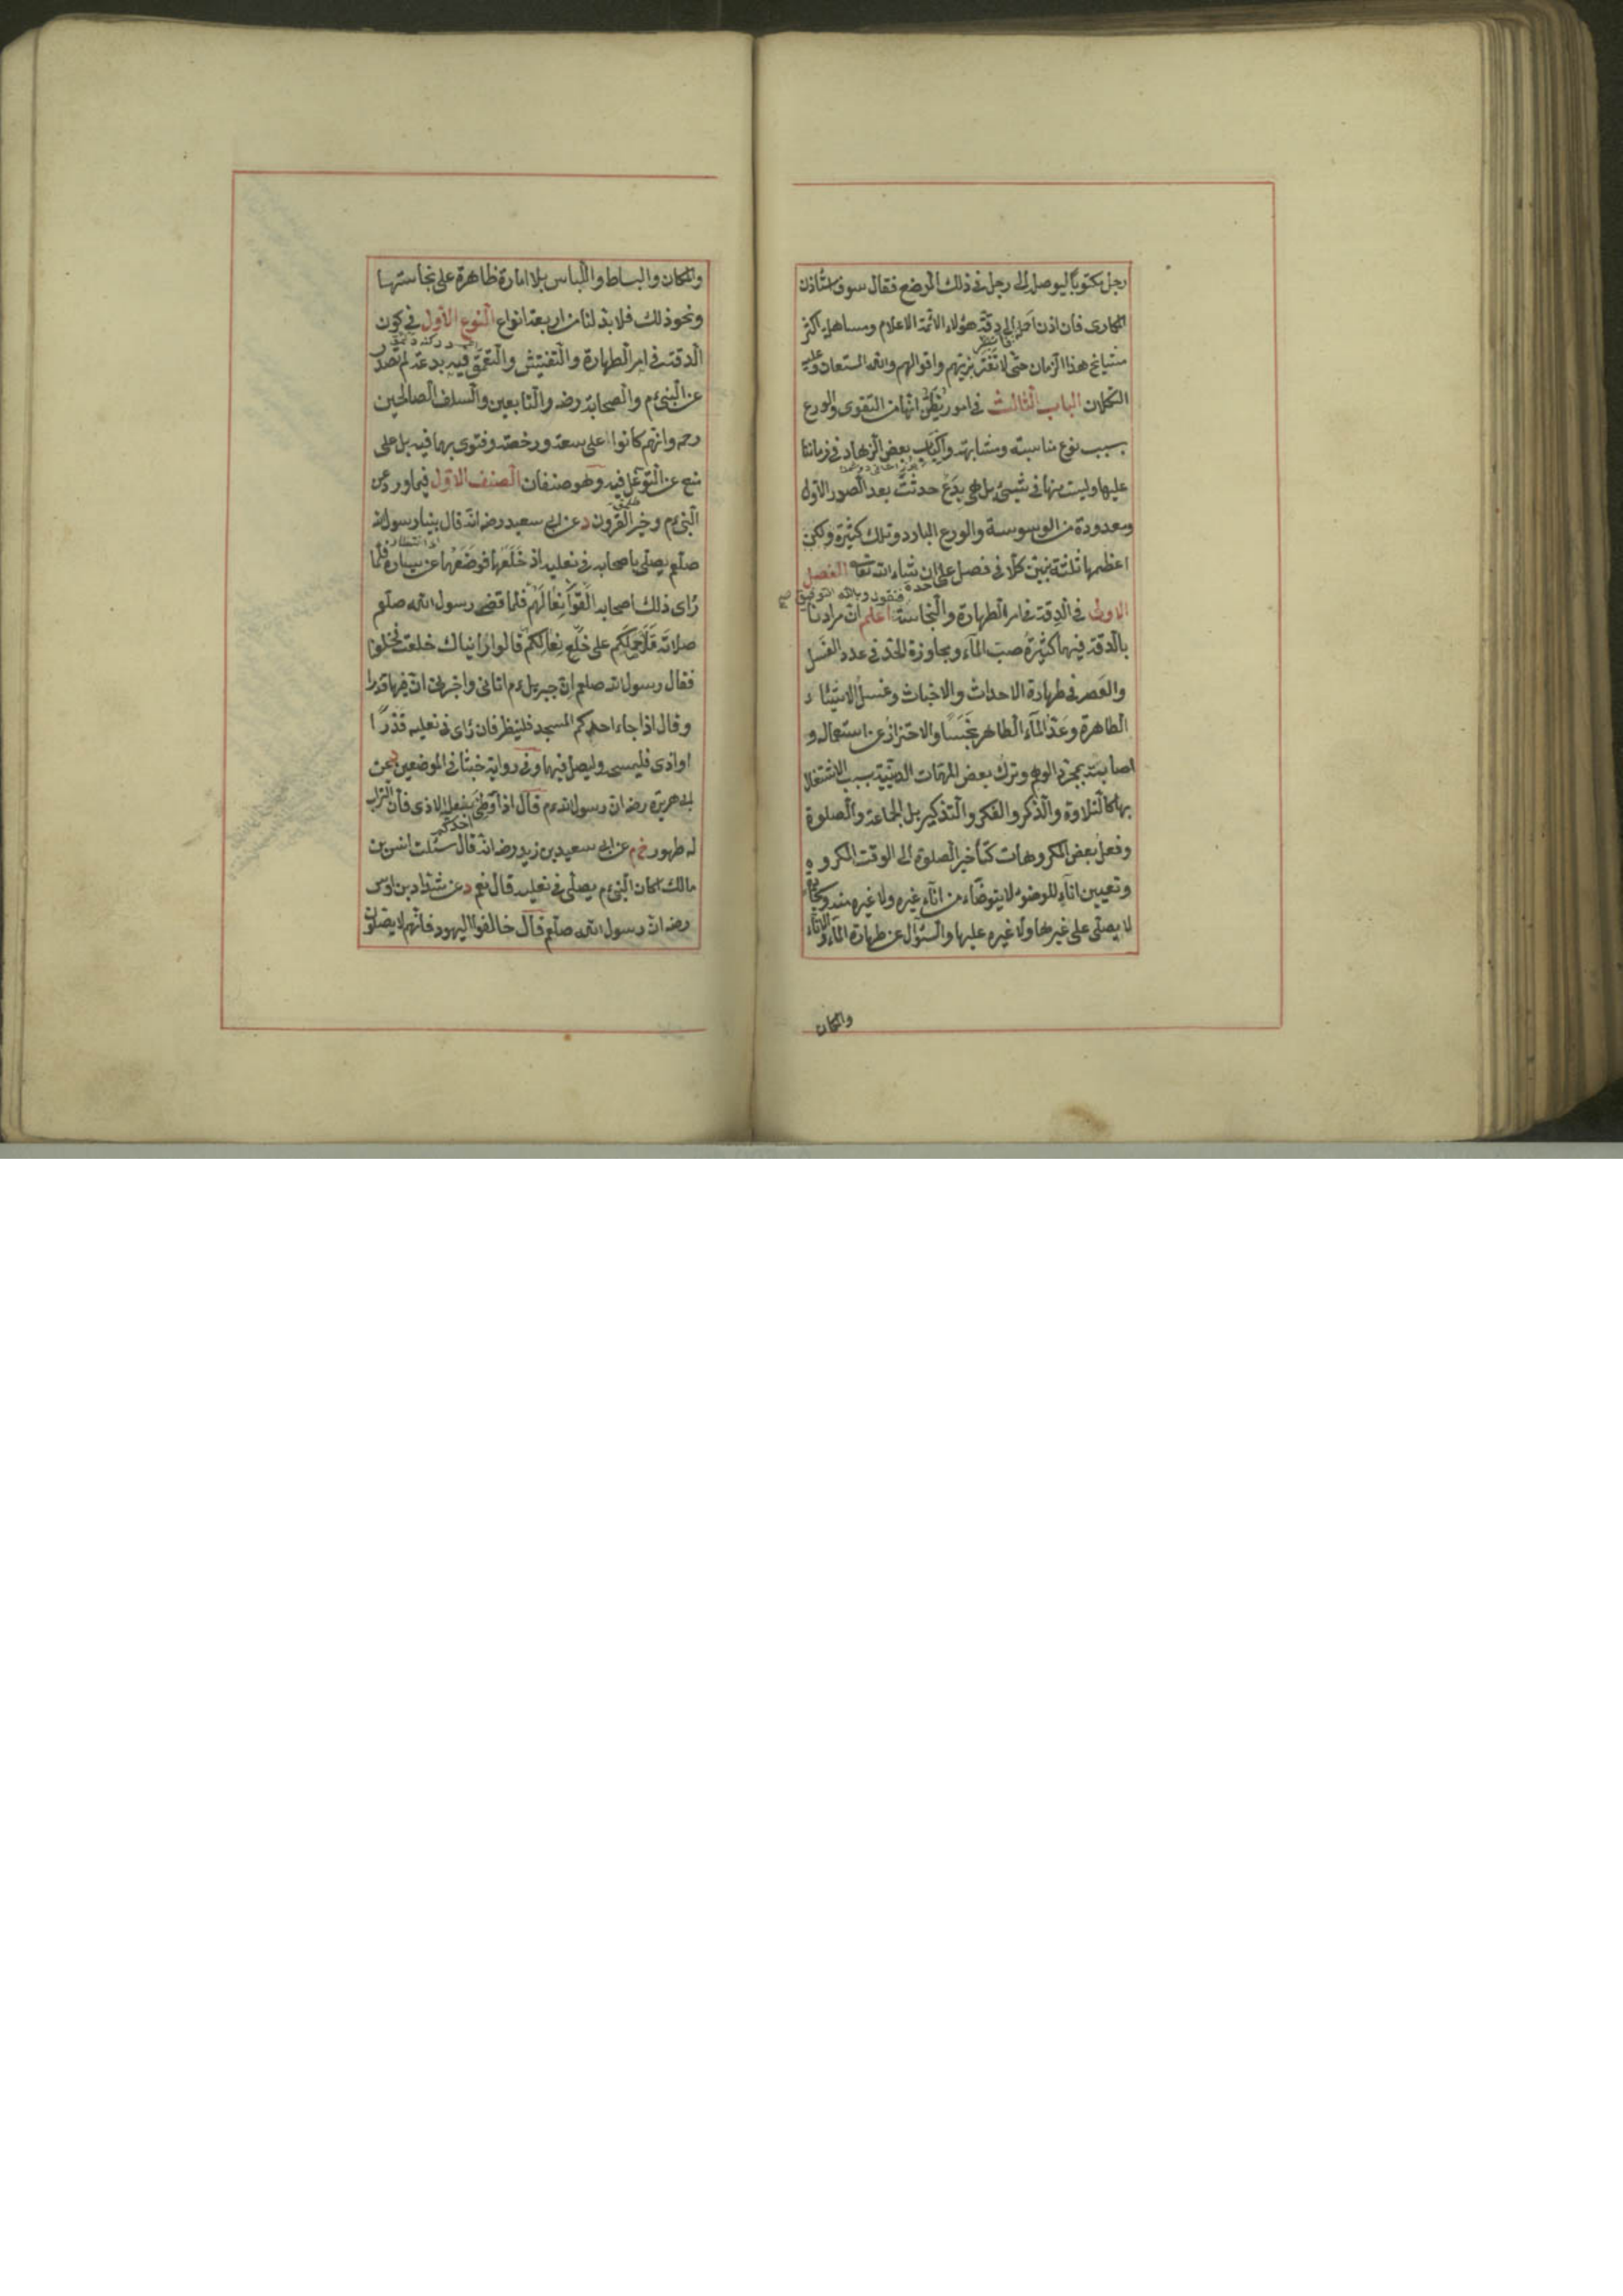 رجل مكتوبًا ليوصل الى رجل في ذلك الموضع فقال سوف استأذن
المكارى فان اذن احمل الى دقة هؤلاء الائمة الاعلام ومساهلة اكثر
متشايخ هذا الزمان حتى لا تغتر بزيهم واقوالهم والله المستعان وعليه
التكلان الباب الثالث في امور يظن انها من التقوى والورع
بسبب نوع مناسبته ومشابهته واكباب بعض الزهاد في زماننا
عليها وليست منها في شيئ بل هي بدع حدثت بعد الصور الاول
ومعدودة من الوسوسة والورع البارد وتلك كثيرة ولكن
اعظمها ثلثة نبين كلا في فصل على حدة ان شاء الله تعا الفصل
فنقول وبالله التوفيق
الاول في الدقة في امر الطهارة والنجاسة اعلم ان مرادنا
بالدقة فيها كثرة صب المآء ومجاوزة الحد في عدد الغسل
والعصر في طهارة الاحداث والاخباث وغسل الاشياء
الطاهرة وعد المآء الطاهر نجسا والاحتراز عن استعماله و
اصابته بمجرد الوهم وترك بعض المهمات الدينية بسبب الاشتغال
بها كالتلاوة والذكر والفكر والتذكير بل الجماعة والصلوة
وفعل بعض المكروهات كتأخير الصلوة الى الوقت المكروه
وتعيين انآء للوضوء لا يتوضأء من انآء غيره ولا غيره منه
لا يصلى على غيرها ولا غيره عليها والسؤال عن طهارة المآء والانآء
والمكان
والمكان والبساط واللباس بلا امارة ظاهرة على نجاستها
ونحو ذلك فلا بد لنا من اربعة انواع النوع الاول في كون
الدقة في امر الطهارة والتفتيش والتعمق فيه بدعة لم تصدر
عن النبى ءم والصحابة رضه والتابعين والسلف الصالحين
رحم وانهم كانوا على سعة ورخصة وفتوى بها فيه بل على
منع عن التوغل فيه وهو صنفان الصنف الاول فيما ورد عن
النبى ءم وخير القرون د عن ابى سعيد رضه انه قال بينا رسول الله
صلعم يصلى باصحابه في نعليه اذ خلعها فوضعها عن يساره فلما
رأى ذلك اصحابه القوا نعالهم فلما قضى رسول الله صلعم
صلاته قال ما حملكم على خلع نعالكم قالوا رأيناك خلعت فخلعنا
فقال رسول الله صلعم ان جبريل ءم اتانى واخبرنى ان فيها قذرا
وقال اذا جاء احدكم المسجد فلينظر فان رأى في نعليه قذرًا
او اذى فليمسح وليصل فيها وفي رواية خبثا في الموضعين د عن
ابى هريرة رضه ان رسول الله ءم قال اذا وطئ احدكم بنعله الاذى فان التراب
له طهور خ م عن ابى سعيد بن زيد رضه انه قال سئلت انس بن
مالك اكان النبى ءم يصلى في نعليه قال نعم د عن شداد بن اوس
رضه ان رسول الله صلعم قال خالفوا اليهود فانهم لا يصلون